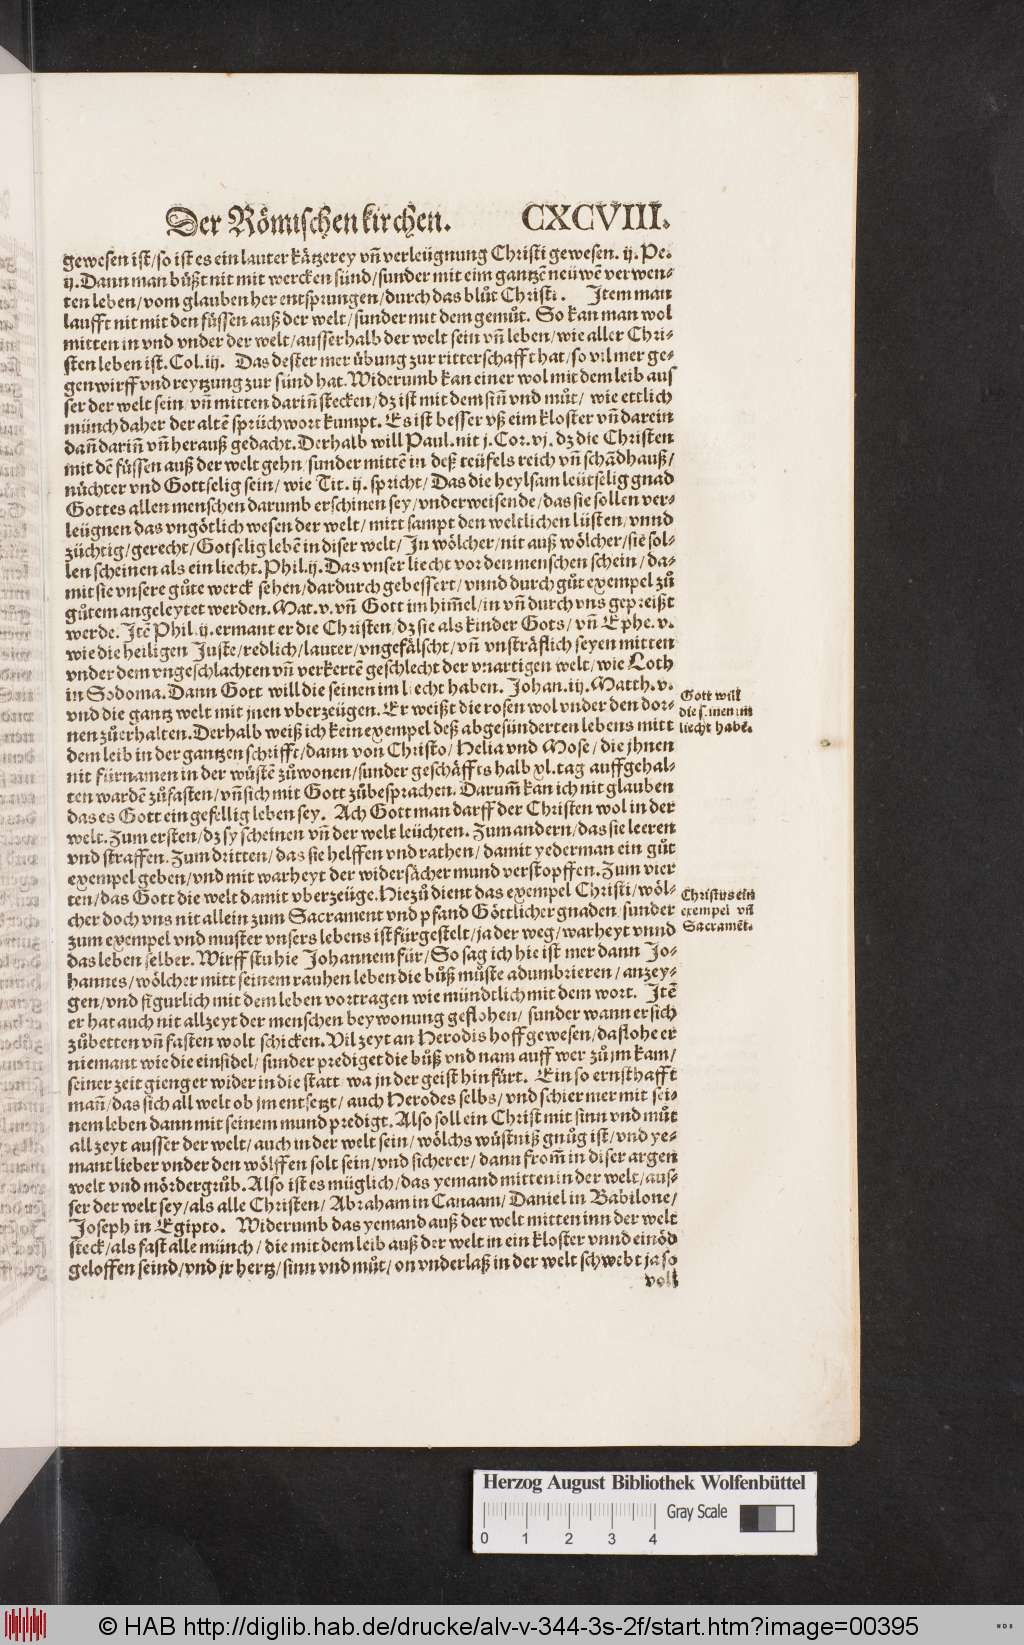 Der Römischen kirchen. CXCVIII.
gewesen ist/so ist es ein lauter kätzerey vñ verleügnung Christi gewesen. ij. Pe.
ij. Dann man bůßt nit mit wercken sünd/sunder mit eim gantzē neüwē verwen-
ten leben/vom glauben her entsprungen/durch das blůt Christi. Item man
laufft nit mit den füssen auß der welt/sunder mit dem gemůt. So kan man wol
mitten in vnd vnder der welt/ausserhalb der welt sein vñ leben/wie aller Chri-
sten leben ist. Col. iij. Das dester mer übung zur ritterschafft hat/so vil mer ge-
genwirff vnd reytzung zur sünd hat. Widerumb kan einer wol mit dem leib aus
ser der welt sein/vñ mitten dariñ stecken/dz ist mit dem siñ vnd můt/wie ettlich
münch daher der altē sprüchwort kumpt. Es ist besser vß eim kloster vñ darein
dañ dariñ vñ herauß gedacht. Derhalb will Paul. nit j. Cor. vj. dz die Christen
mit dē füssen auß der welt gehn/sunder mittē in deß teüfels reich vñ schādhauß/
nüchter vnd Gottselig sein/wie Tit. ij. spricht/Das die heylsam leütselig gnad
Gottes allen menschen darumb erschinen sey/vnderweisende/das sie sollen ver-
leügnen das vngötlich wesen der welt/mitt sampt den weltlichen lüsten/vnnd
züchtig/gerecht/Gotselig lebē in diser welt/In wölcher/nit auß wölcher/sie sol-
len scheinen als ein liecht. Phil. ij. Das vnser liecht vor den menschen schein/da-
mit sie vnsere gůte werck sehen/dardurch gebessert/vnnd durch gůt exempel zů
gůtem angeleytet werden. Mat. v. vñ Gott im him̄el/in vñ durch vns gepreißt
werde. Itē Phil. ij. ermant er die Christen/dz sie als kinder Gots/vñ Ephe. v.
wie die heiligen Juste/redlich/lauter/vngefälscht/vñ vnsträflich seyen mitten
vnder dem vngeschlachten vñ verkertē geschlecht der vnartigen welt/wie Loth
in Sodoma. Dann Gott will die seinen im liecht haben. Johan. iij. Matth. v.
vnd die gantz welt mit jnen vberzeügen. Er weißt die rosen wol vnder den dor-
nen zů erhalten. Derhalb weiß ich kein exempel deß abgesünderten lebens mitt
dem leib in der gantzen schrifft/dann von Christo/Helia vnd Mose/die jhnen
nit fürnamen in der wüstē zů wonen/sunder geschäffts halb xl. tag auffgehal-
ten wardē zů fasten/vñ sich mit Gott zů besprachen. Darum̄ kan ich nit glauben
das es Gott ein gefellig leben sey. Ach Gott man darff der Christen wol in der
welt. Zum ersten/dz sy scheinen vñ der welt leüchten. Zum andern/das sie leeren
vnd straffen. Zum dritten/das sie helffen vnd rathen/damit yederman ein gůt
exempel geben/vnd mit warheyt der widersächer mund verstopffen. Zum vier
ten/das Gott die welt damit vberzeüge. Hiezů dient das exempel Christi/wöl-
cher doch vns nit allein zum Sacrament vnd pfand Göttlicher gnaden/sunder
zum exempel vnd muster vnsers lebens ist fürgestelt/ja der weg/warheyt vnnd
das leben selber. Wirffstu hie Johannem für/So sag ich hie ist mer dann Jo-
hannes/wölcher mitt seinem rauhen leben die bůß můste adumbrieren/anzey-
gen/vnd figurlich mit dem leben vortragen wie mündtlich mit dem wort. Itē
er hat auch nit allzeyt der menschen beywonung geflohen/sunder wann er sich
zů betten vñ fasten wolt schicken. Vil zeyt an Herodis hoff gewesen/da flohe er
niemant wie die einsidel/sunder prediget die bůß vnd nam auff wer zů jm kam/
seiner zeit gienger wider in die statt/wa jn der geist hin fürt. Ein so ernsthafft
mañ/das sich all welt ob jm entsetzt/auch Herodes selbs/vnd schier mer mit sei-
nem leben dann mit seinem mund predigt. Also soll ein Christ mit sinn vnd můt
all zeyt ausser der welt/auch in der welt sein/wölchs wüstniß gnůg ist/vnd ye-
mant lieber vnder den wölffen solt sein/vnd sicherer/dann from̄ in diser argen
welt vnd mördergrůb. Also ist es müglich/das yemand mitten in der welt/aus-
ser der welt sey/als alle Christen/Abraham in Canaam/Daniel in Babilone/
Joseph in Egipto. Widerumb das yemand auß der welt mitten inn der welt
steck/als fast alle münch/die mit dem leib auß der welt in ein kloster vnnd einöd
geloffen seind/vnd jr hertz/sinn vnd můt/on vnderlaß in der welt schwebt ja so
voll
Gott will
die seinen im
liecht habē.
Christus ein
exempel vñ
Sacramēt.
Herzog August Bibliothek Wolfenbüttel
Gray Scale
0 1 2 3 4
© HAB http://diglib.hab.de/drucke/alv-v-344-3s-2f/start.htm?image=00395